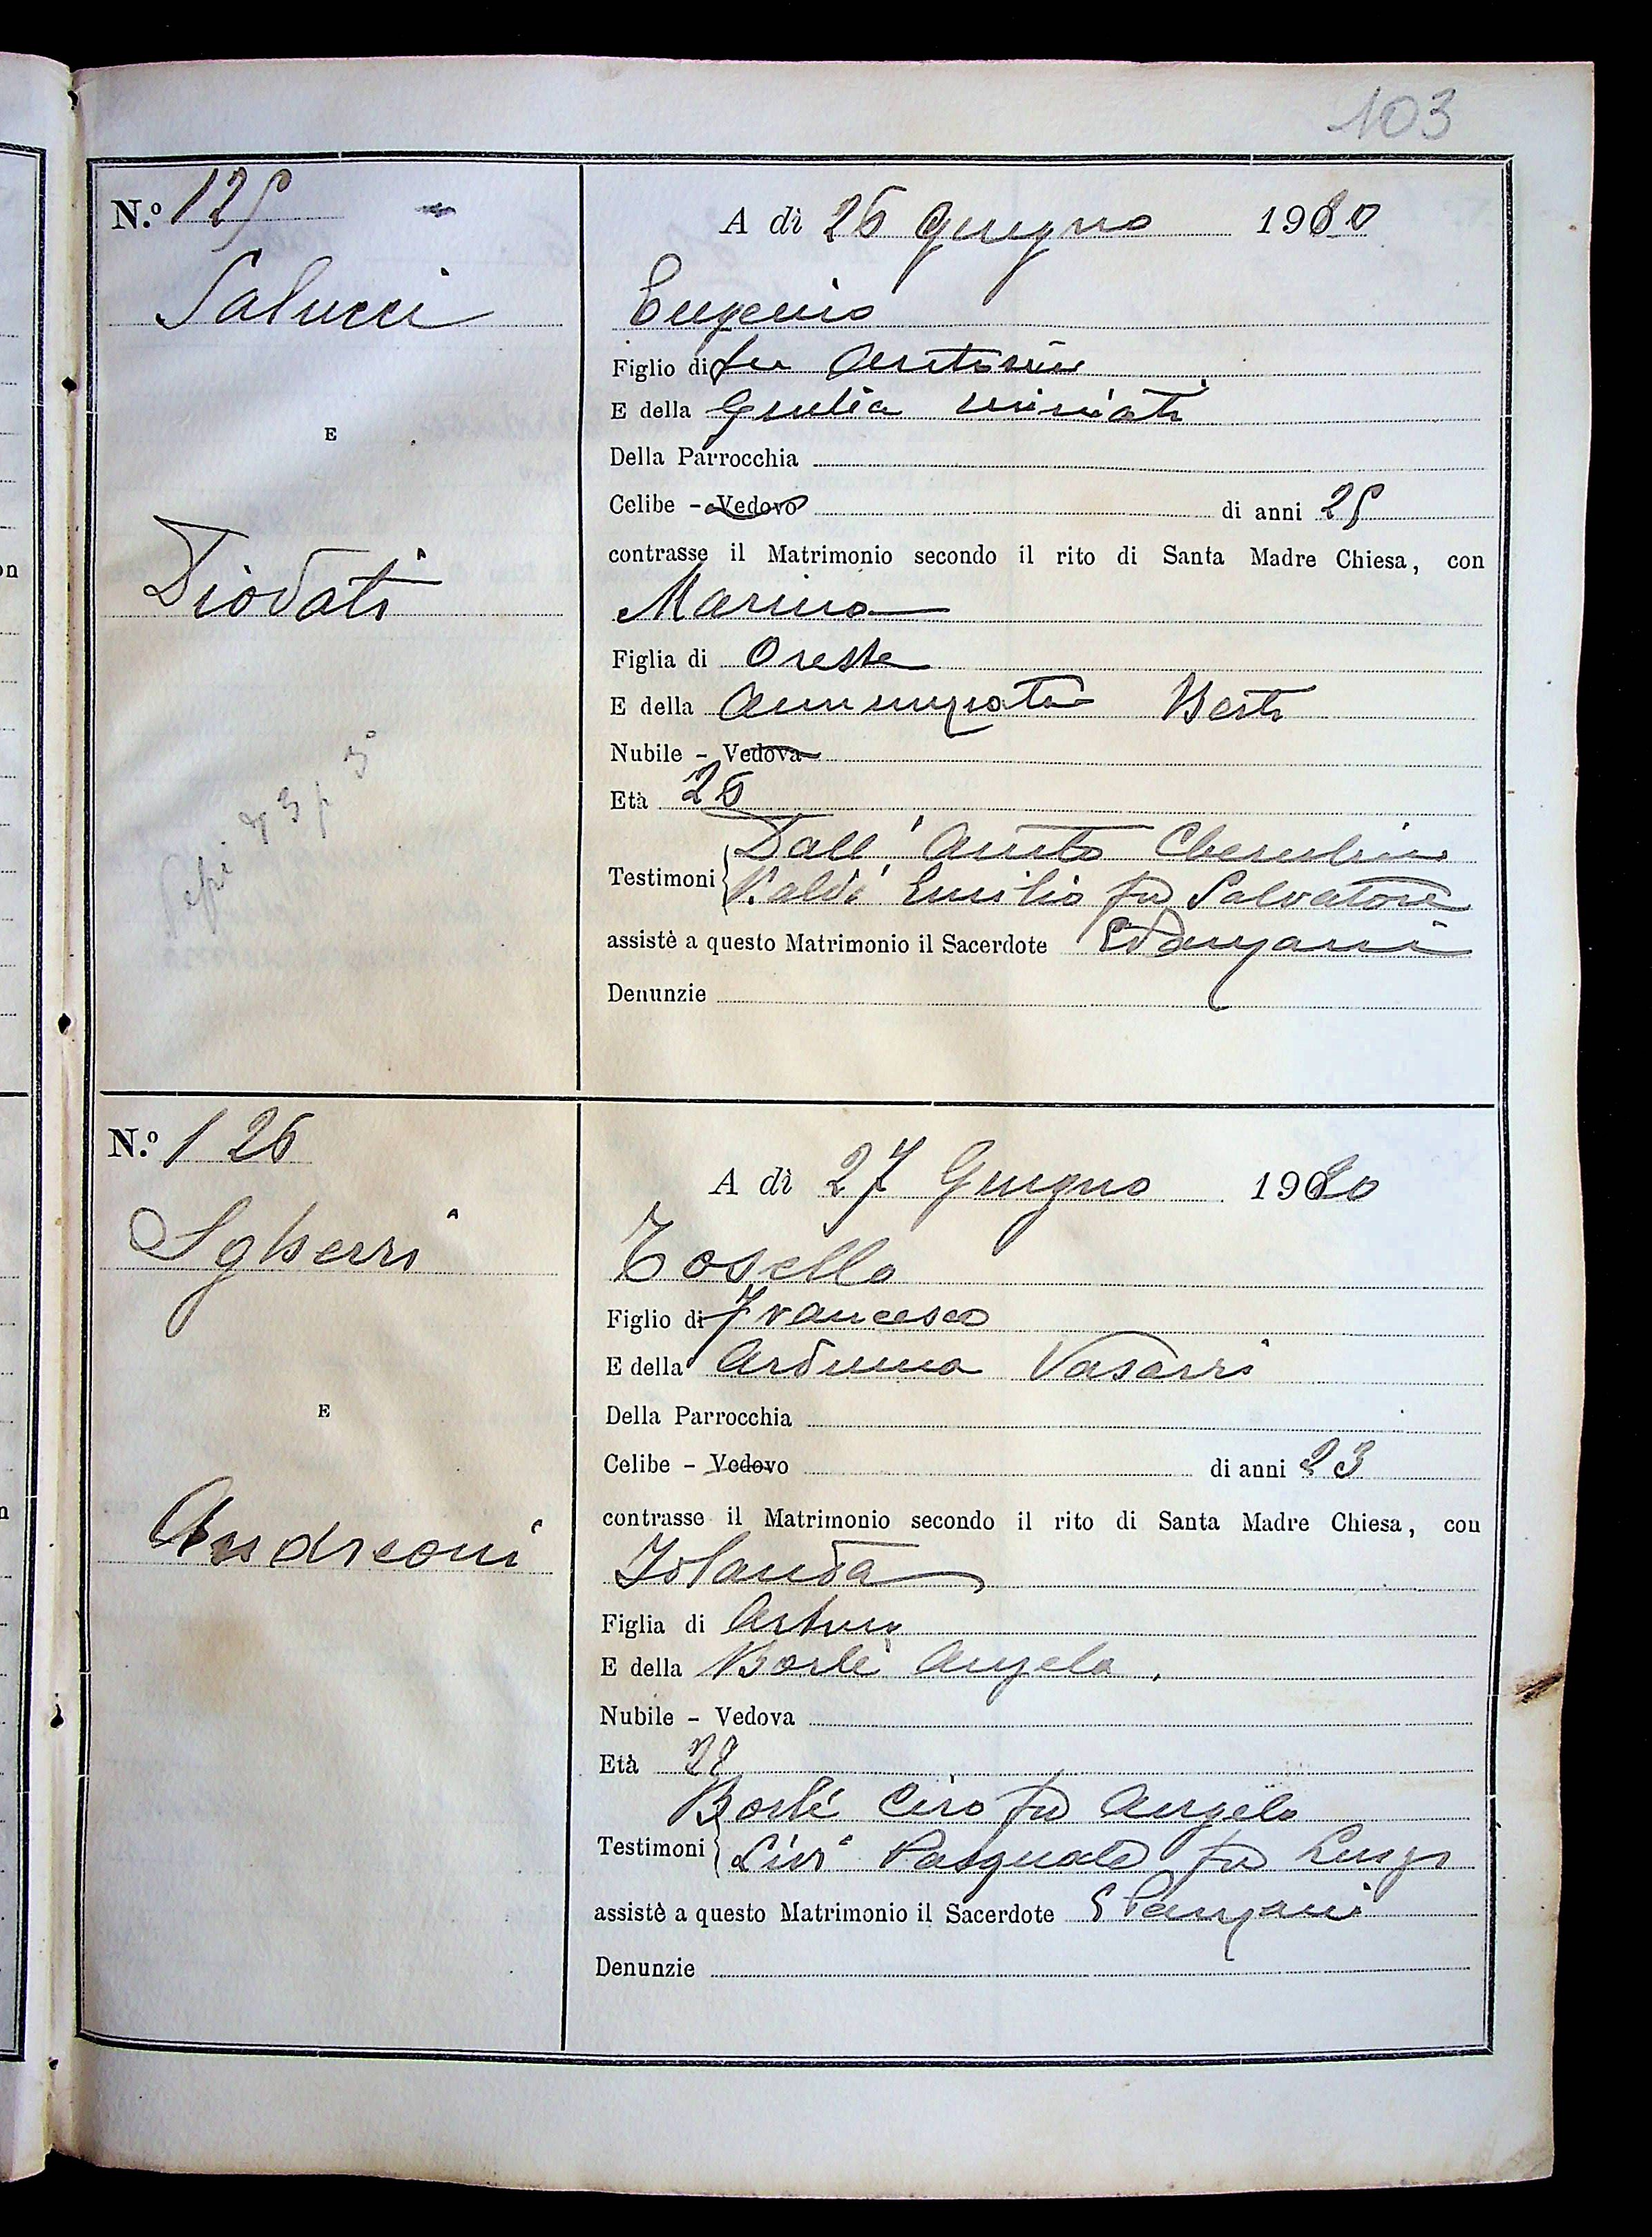 103
N.º 125
Salucci
E
Diodati
A dì 26 Giugno 1920
Eugenio
Figlio di fu Antonio
E della Giulia Miniati
Della Parrocchia
Celibe - Vedovo di anni 25
contrasse il Matrimonio secondo il rito di Santa Madre Chiesa, con
Marina
Figlia di Oreste
E della Annunziata Berti
Nubile - Vedova
Età 26
Dall' Cherubino
Testimoni
Emilio fu Salvatore
assistè a questo Matrimonio il Sacerdote
Denunzie
N.º 126
Sgherri
E
Andreoni
A dì 27 Giugno 1920
Tosello
Figlio di Francesco
E della Arduina Vasarri
Della Parrocchia
Celibe - Vedovo di anni 23
contrasse il Matrimonio secondo il rito di Santa Madre Chiesa, con
Iolanda
Figlia di Arturo
E della Borlè Angela
Nubile - Vedova
Età
Borlè Ciro fu Angelo
Testimoni
Livi Pasquale fu Luigi
assistè a questo Matrimonio il Sacerdote
Denunzie